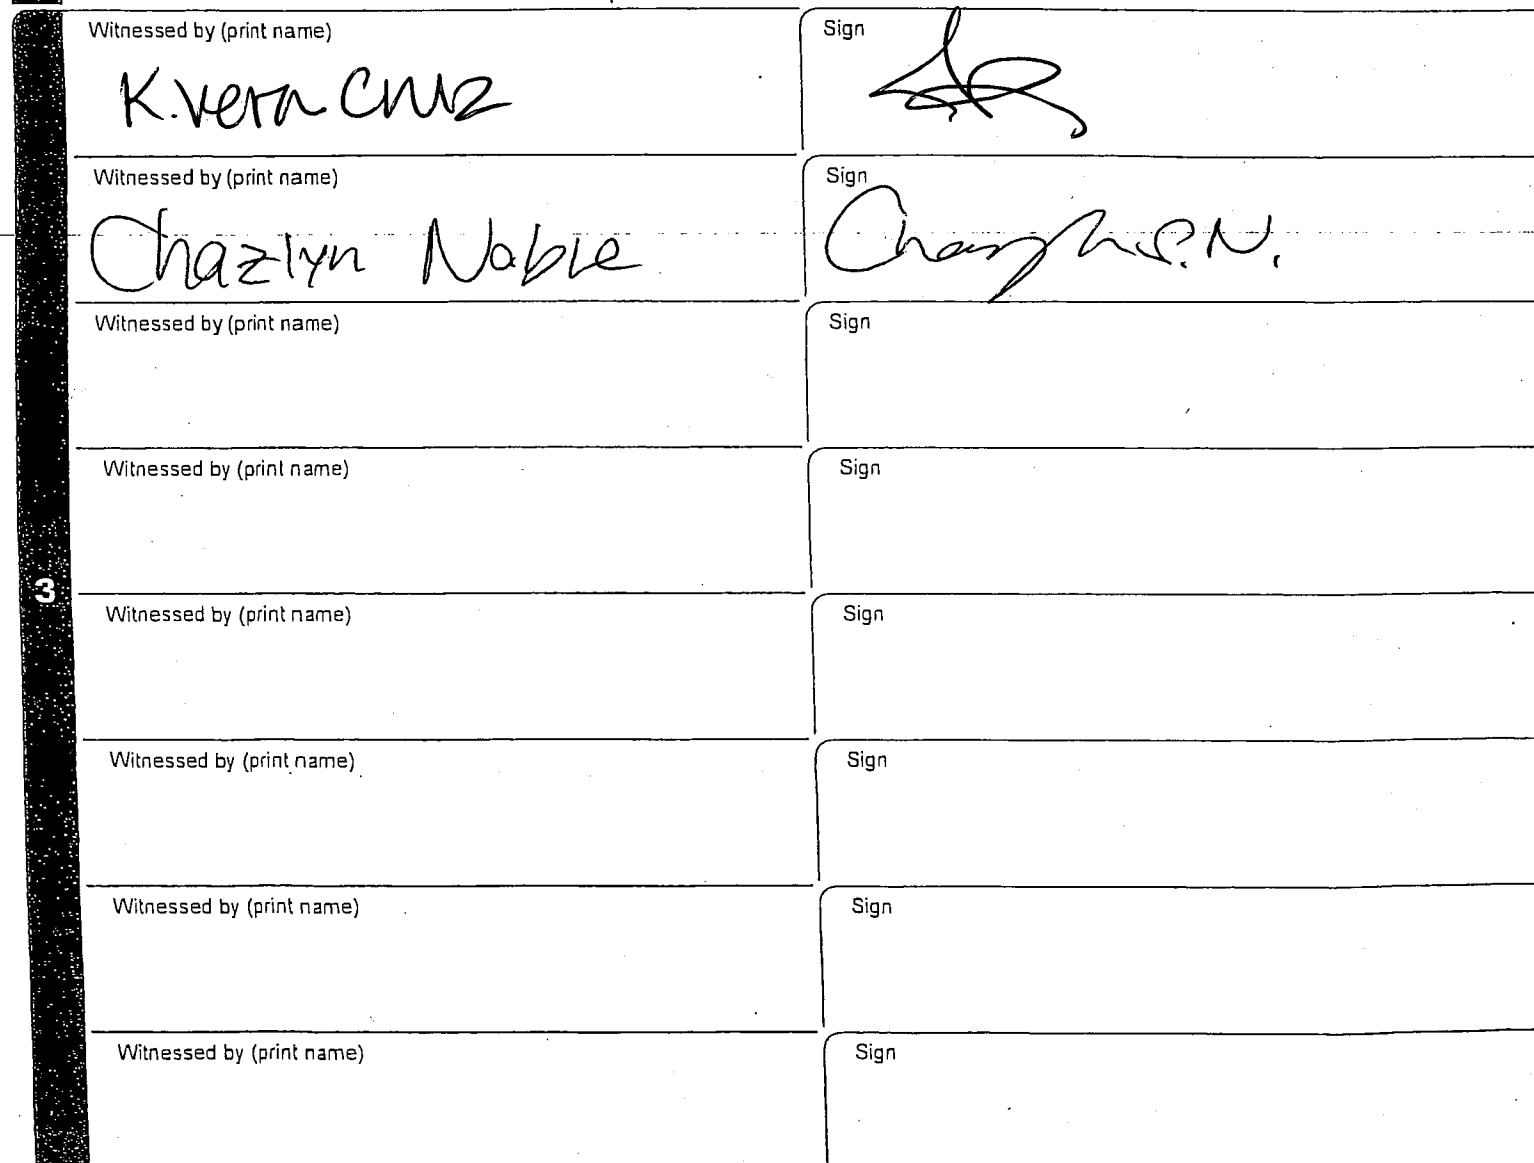 Witnessed by (print name) Sign
K. Vera Cruz
Witnessed by (print name) Sign
Chazlyn Noble
Witnessed by (print name) Sign
Witnessed by (print name) Sign
3
Witnessed by (print name) Sign
Witnessed by (print name) Sign
Witnessed by (print name) Sign
Witnessed by (print name) Sign